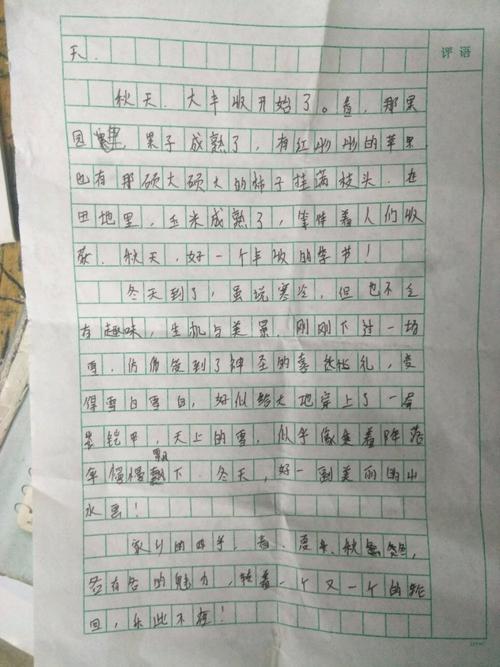 评语
天.
秋天.大丰收开始了。看,那果
园里,果子成熟了,有红彤彤的苹果
也有那硕大硕大的柿子挂满枝头.在
田地里,玉米成熟了,等待着人们收
获.秋天,好一个丰收的季节!
冬天到了,虽说寒冷,但也不乏
有趣味,生机与美景.刚刚下过一场
雪.仿佛受到了神圣的洗礼,变
得雪白雪白,好似给大地穿上了一层
铠甲,天上的雪,似乎像坐着降落
伞慢慢飘下.冬天,好一副美丽的山
水画!
家乡的四季,春.夏.秋
各有各的魅力,转着一个又一个的轮
回,乐此不疲!